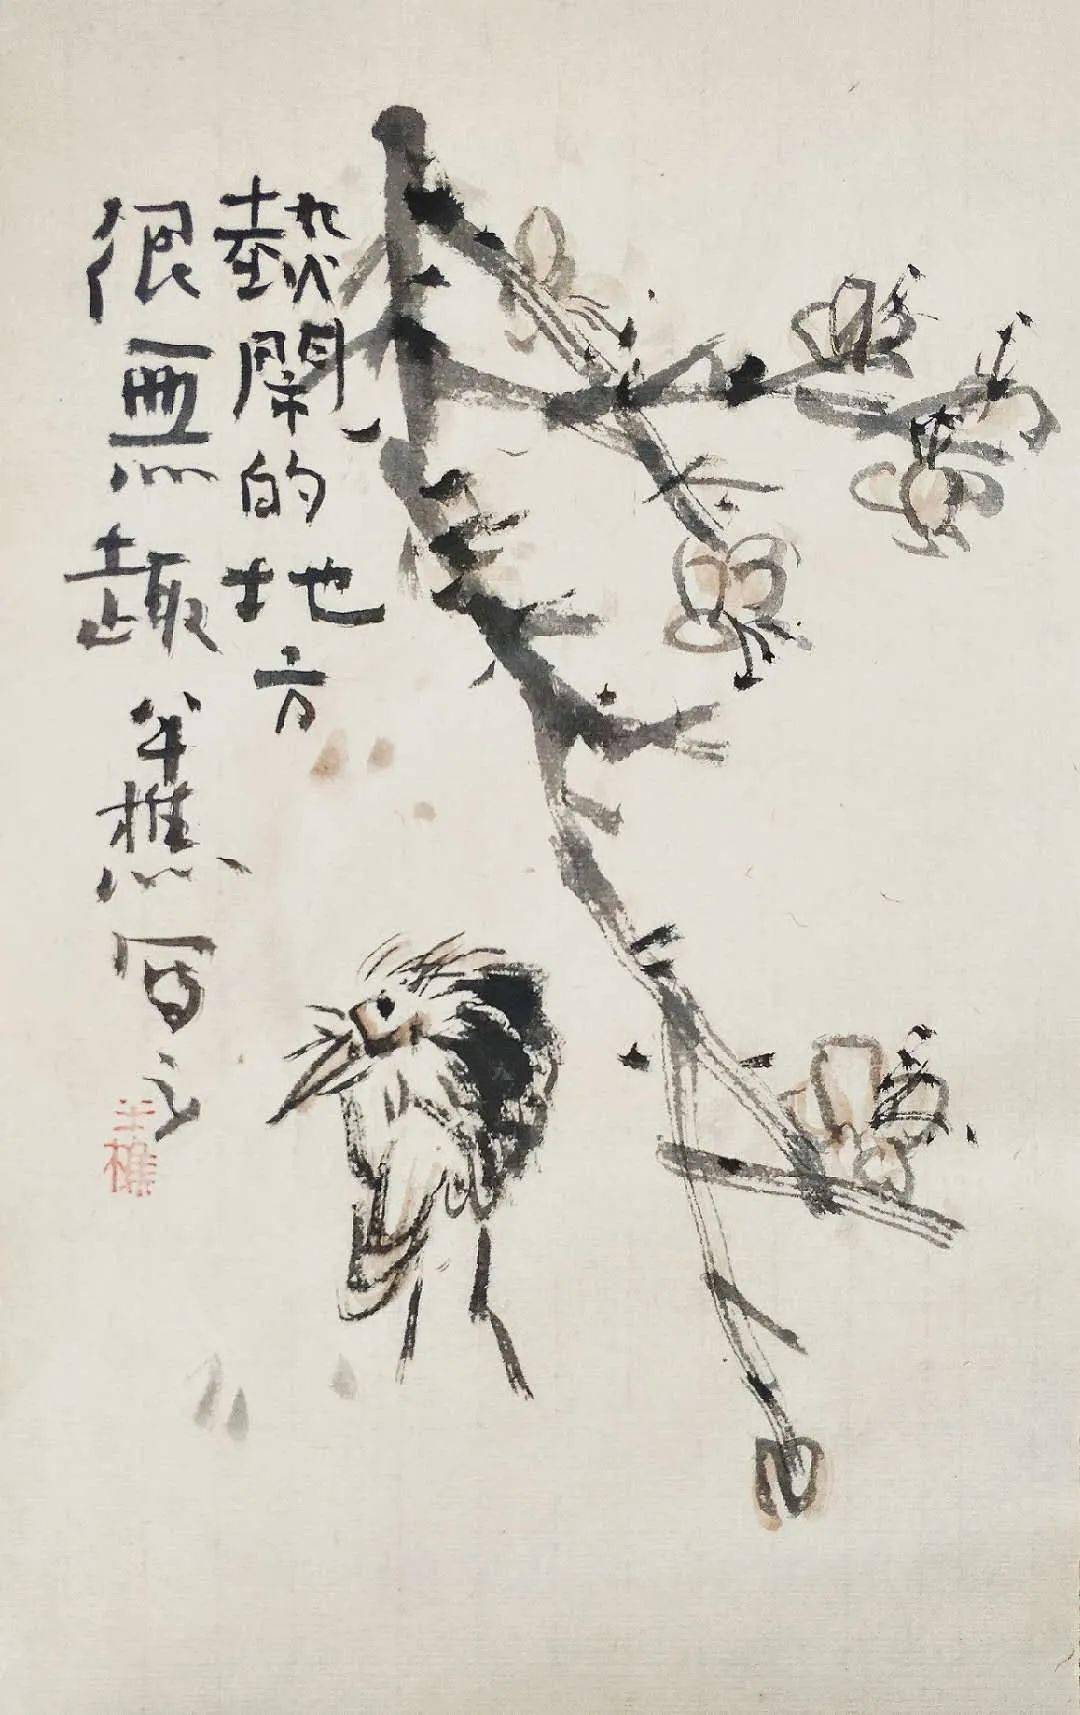 热闹的地方
很無趣 半樵寫之
半樵